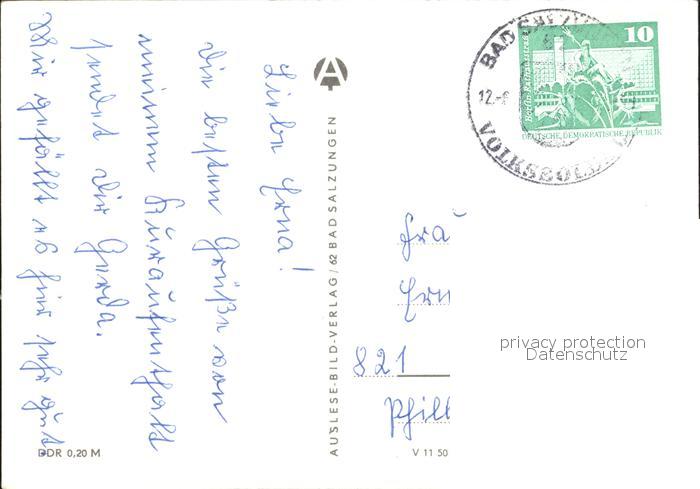 Liebe Erna!
Die besten Grüße von
meinem Kuraufenthalt
sendet Dir Gerda.
Mir gefällt es hier sehr gut.
DDR 0,20 M
AUSLESE-BILD-VERLAG / 62 BAD SALZUNGEN
V 11 50
BAD SALZUN
12.-
VOLKSSOL
10
Berlin, Rathausstraße
DEUTSCHE DEMOKRATISCHE REPUBLIK
Frau
Ern
821
Phill
privacy protection
Datenschutz